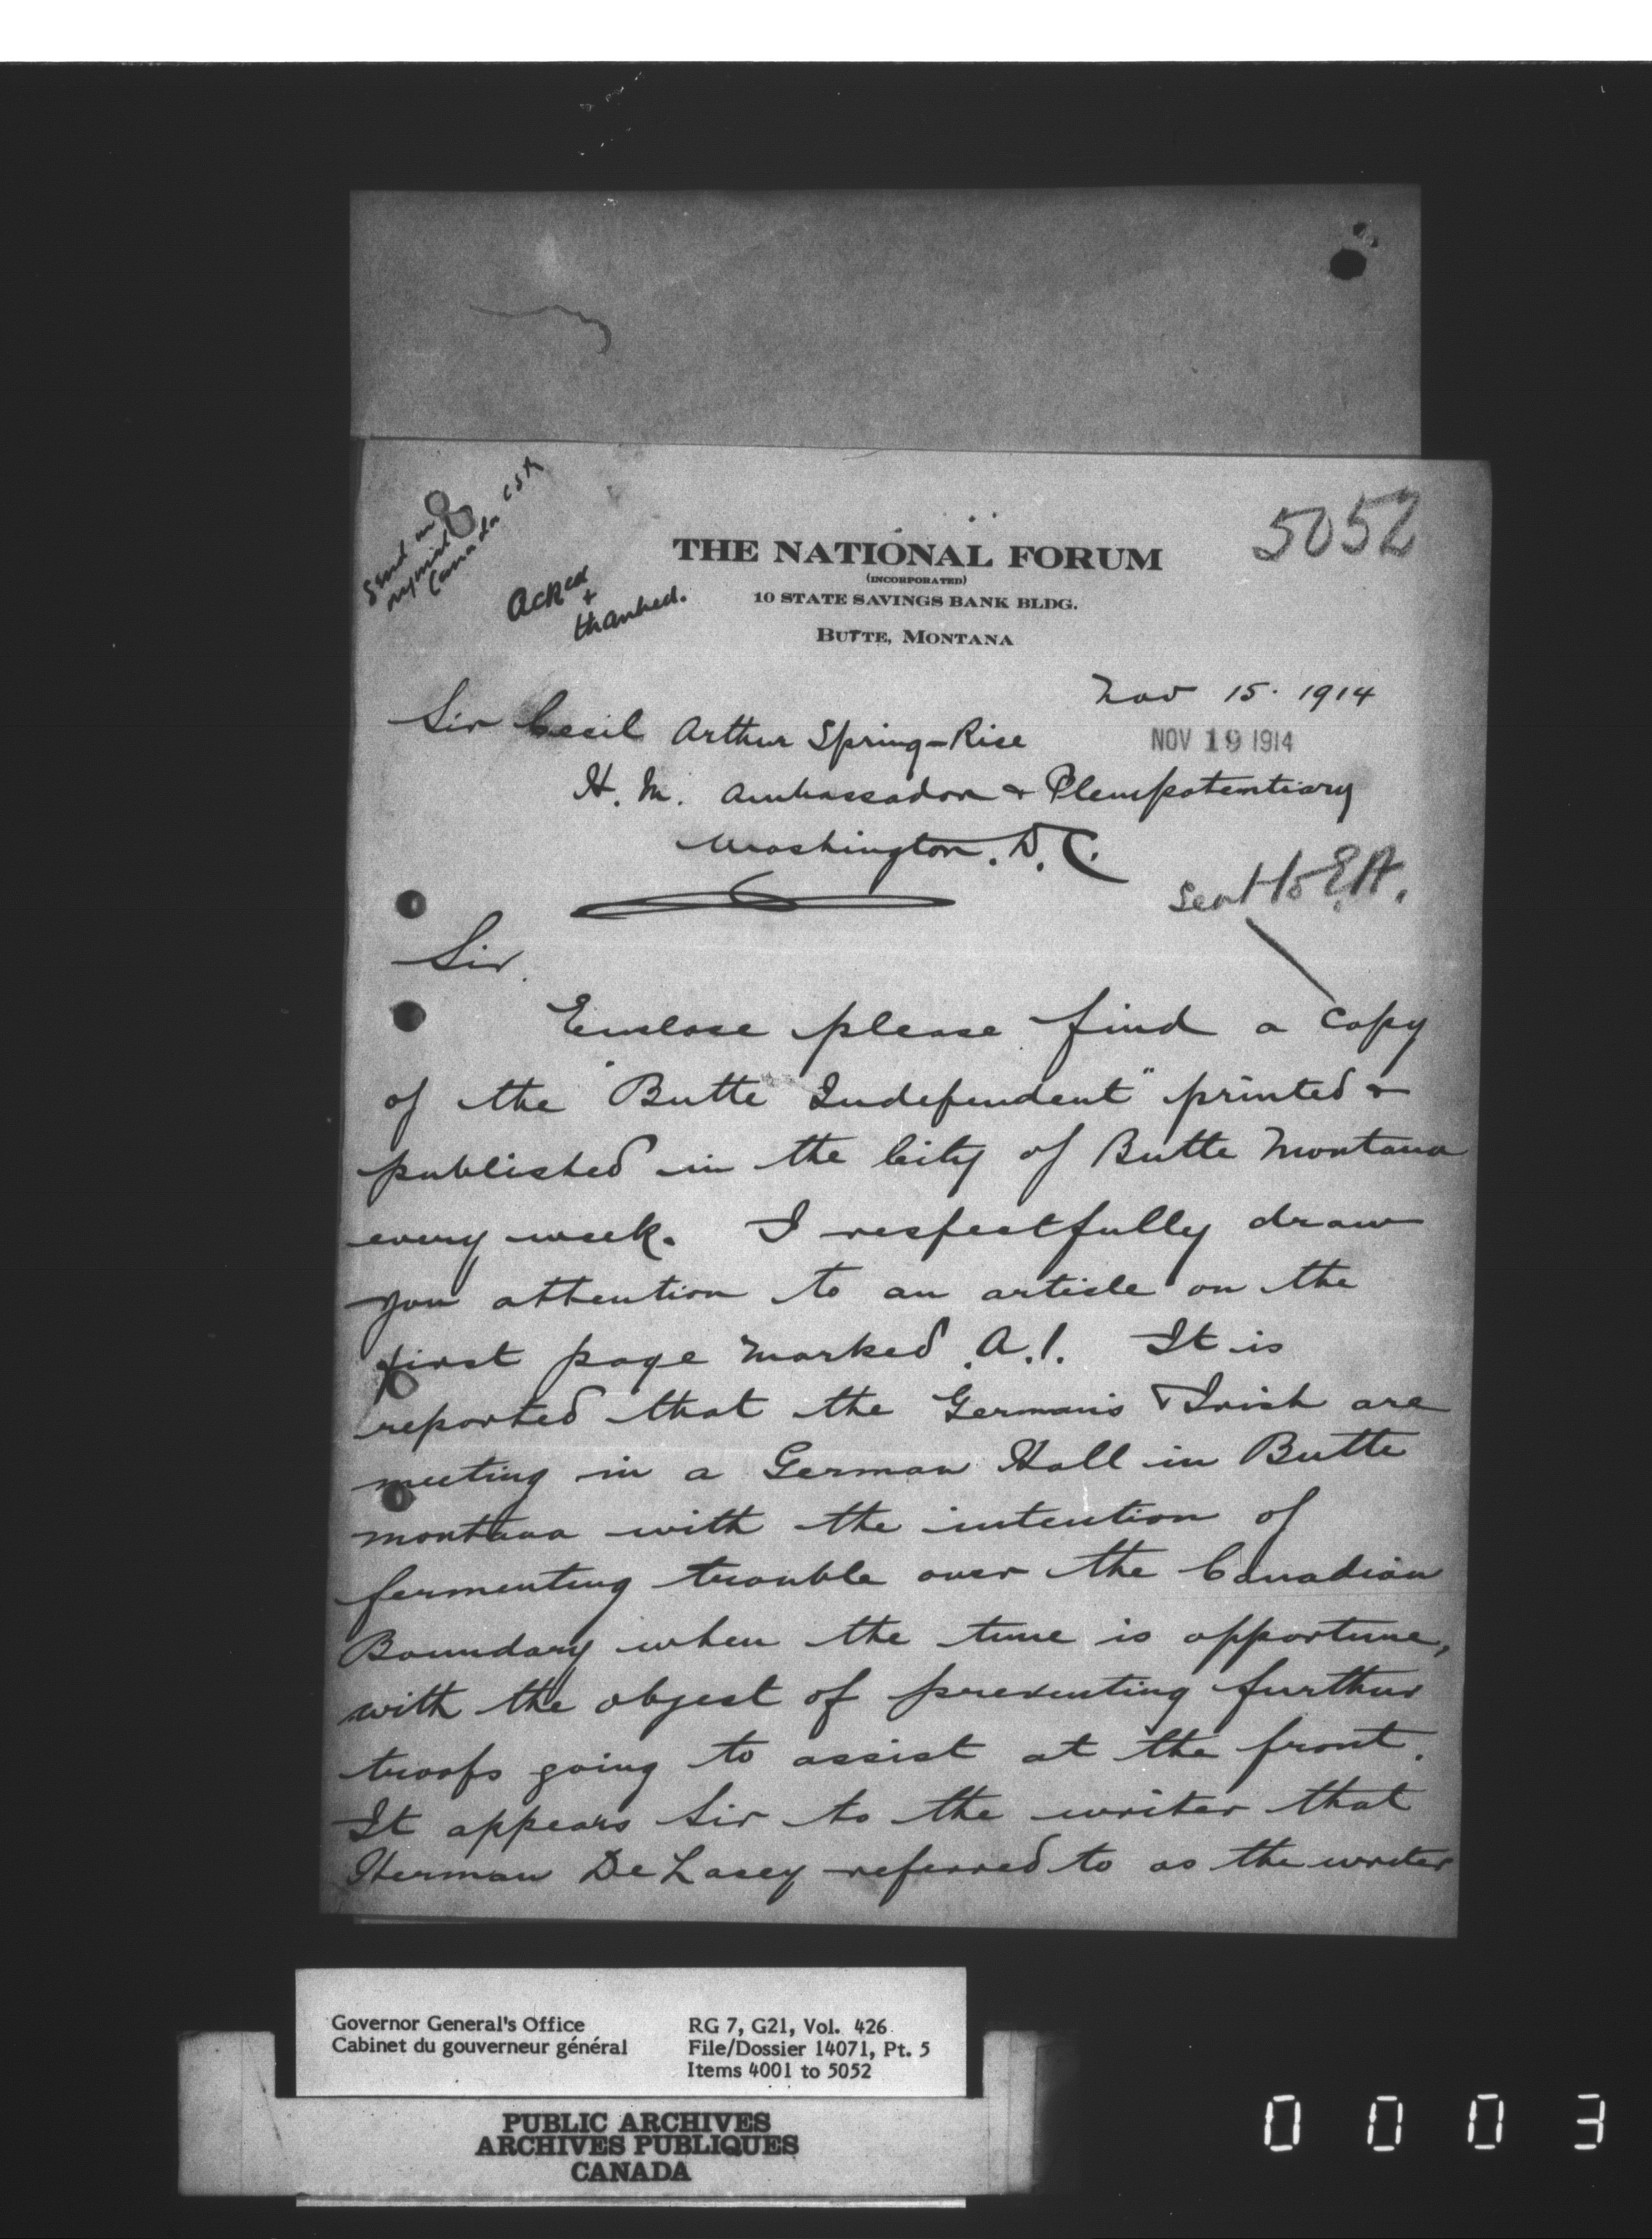 Send in
Canada CSR
Acked
+
thanked.
5052
THE NATIONAL FORUM
(INCORPORATED)
10 STATE SAVINGS BANK BLDG.
BUTTE, MONTANA
Nov 15. 1914
NOV 19 1914
Sir Cecil Arthur Spring-Rice
H. M. Ambassador & Plenipotentiary
Washington. D. C.
Sent to E.A.
Sir.
Enclose please find a copy
of the "Butte Independent" printed &
published in the City of Butte Montana
every week. I respectfully draw
you attention to an article on the
first page marked A.1. It is
reported that the Germans & Irish are
meeting in a German Hall in Butte
Montana with the intention of
fermenting trouble over the Canadian
Boundary when the time is opportune,
with the object of preventing further
troops going to assist at the front.
It appears Sir to the writer that
Herman De Lacey referred to as the writer
Governor General's Office
Cabinet du gouverneur général
RG 7, G21, Vol. 426
File/Dossier 14071, Pt. 5
Items 4001 to 5052
PUBLIC ARCHIVES
ARCHIVES PUBLIQUES
CANADA
0003